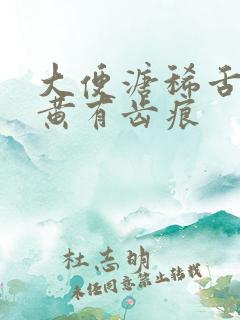 大便溏稀舌
黄有齿痕
杜志明
未经同意禁止转载